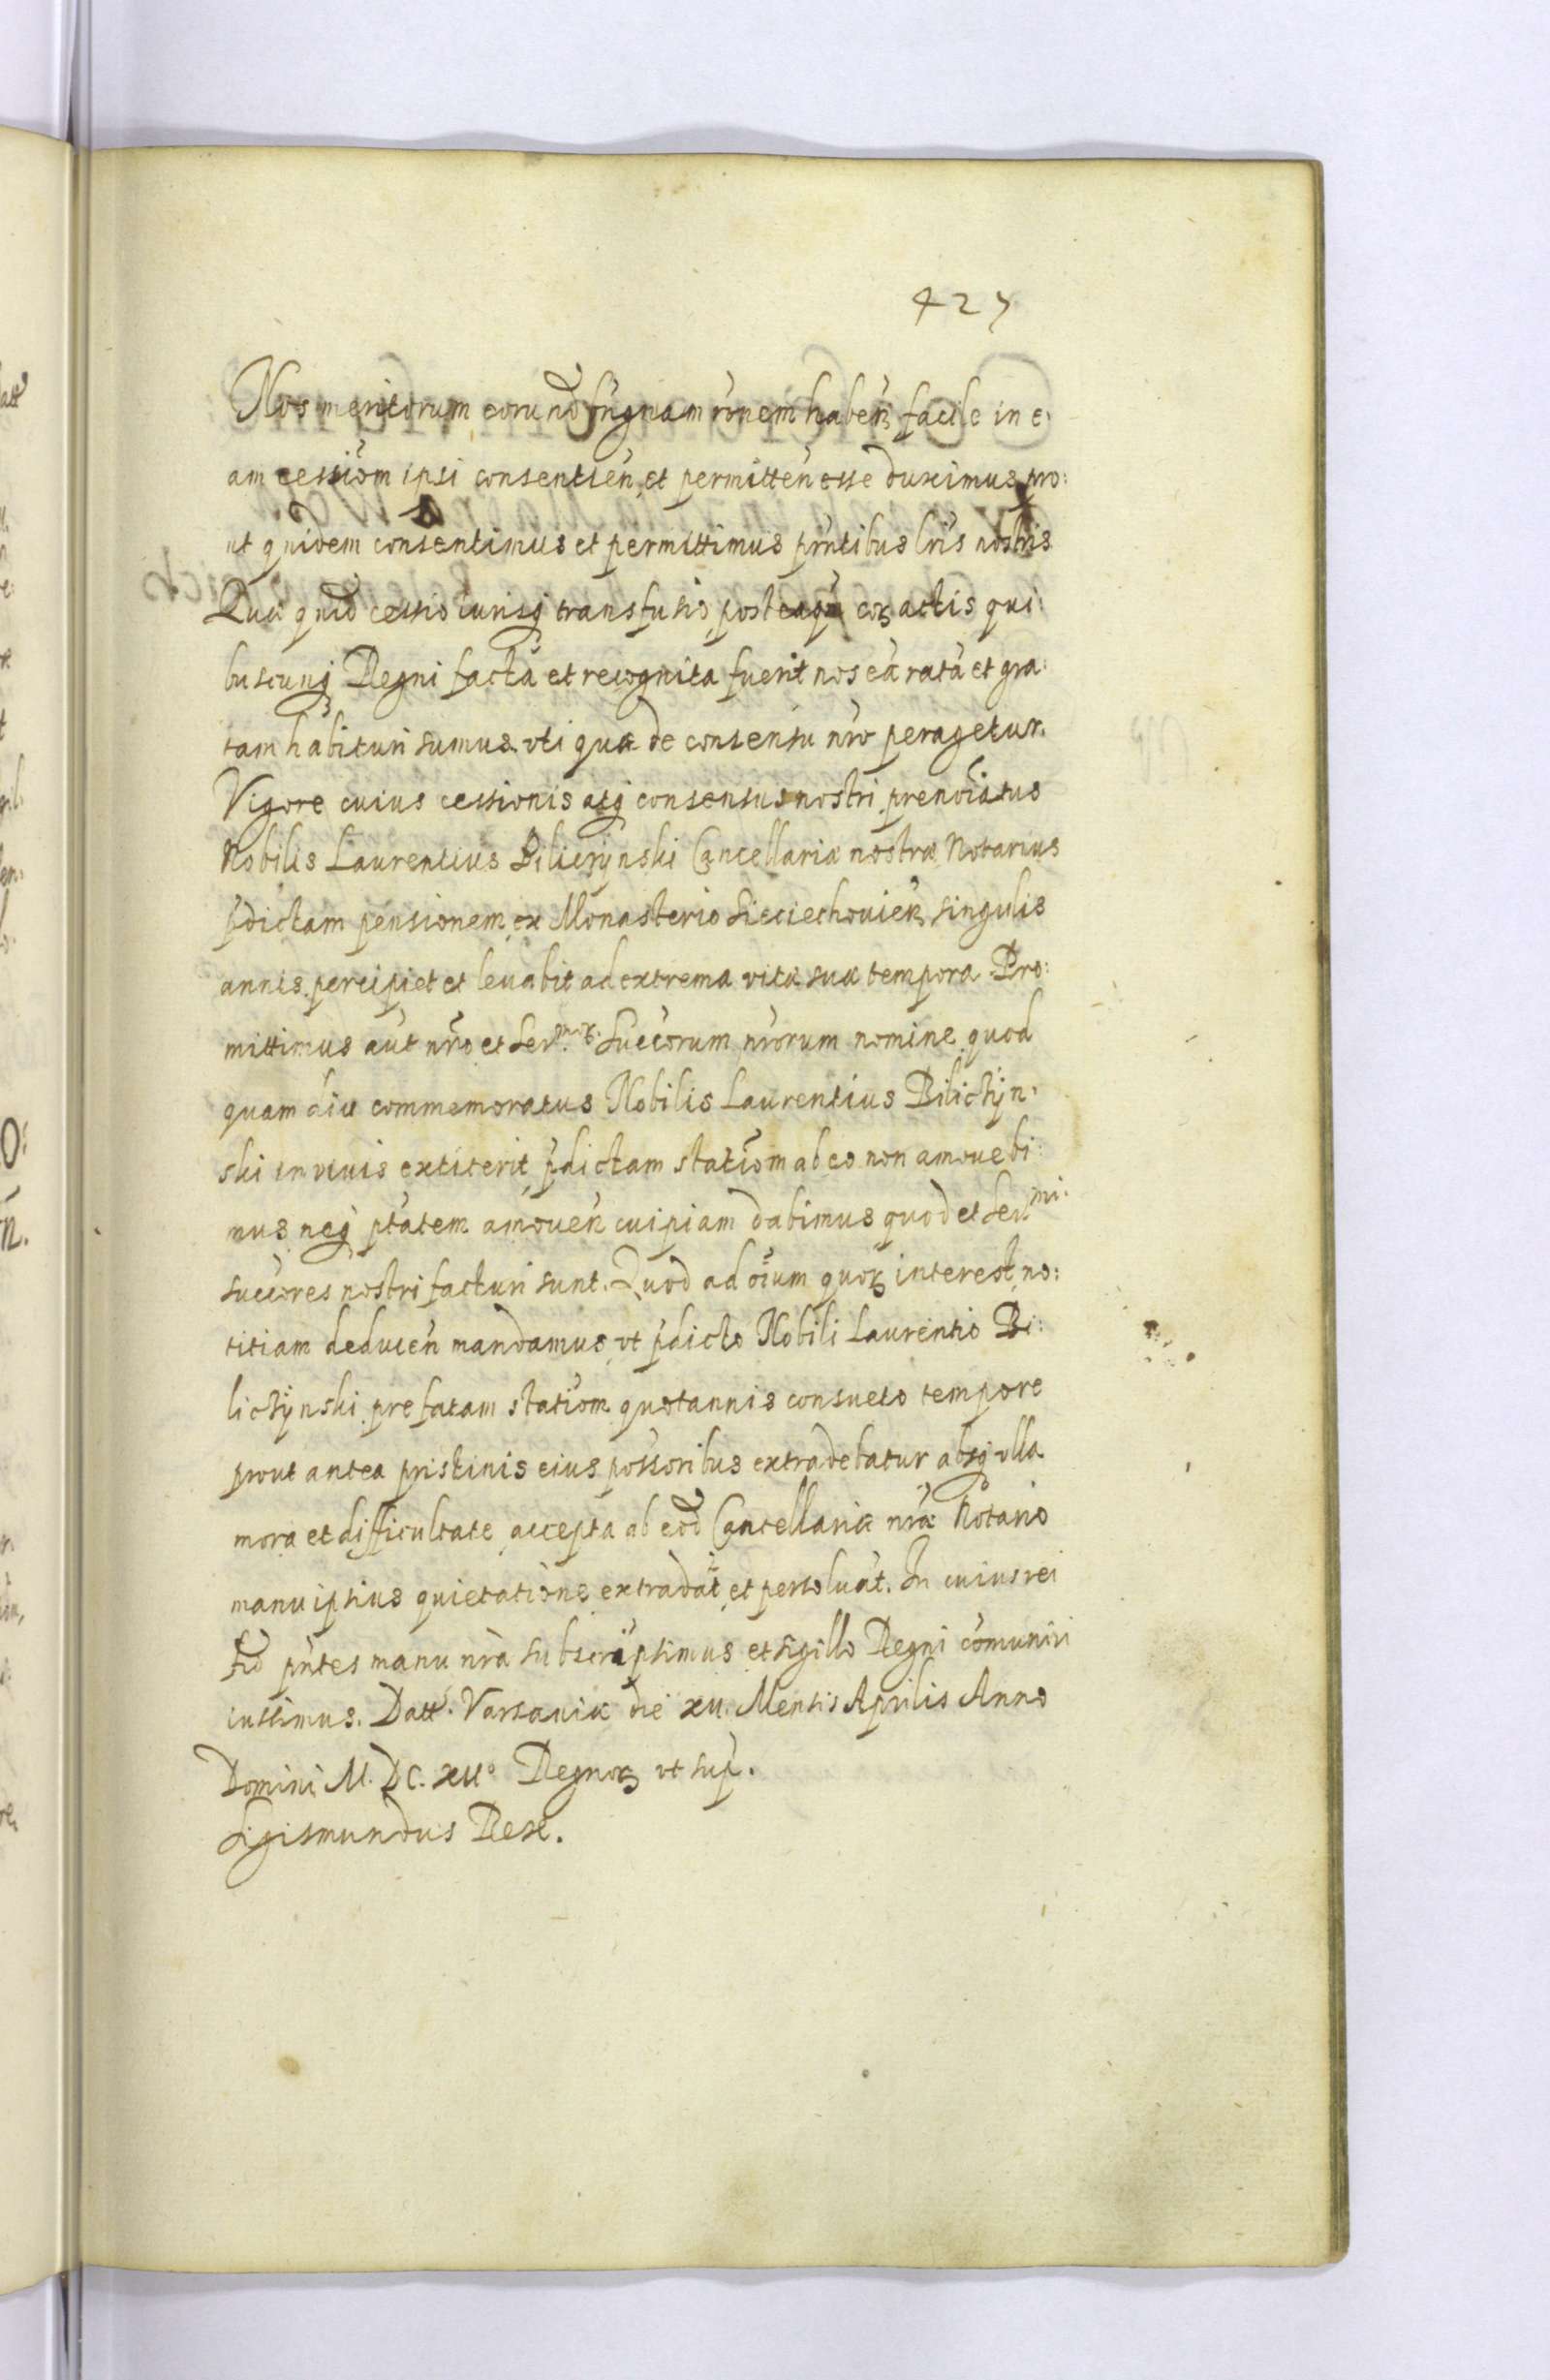 427
Nos meritorum eorund dignam rõnem haben facile in e:
am cessiõm ipsi consentien et permitten esse duximus pro:
ut quidem consentimus et permittimus pñtibus lris nostris
Quæ quid cessio iurisq transfusio, posteaq corã actis qui:
buscunq Regni facta et recognita fuerit nos eã ratã et gra:
tam habituri sumus vti quæ de consensu nro peragetur.
Vigore cuius cessionis atq consensus nostri prenoiatus
Nobilis Laurentius Biliczÿnski Cancellariæ nostræ Notarius
pdictam pensionem ex Monasterio Sieciechovien singulis
annis percipiet et leuabit ad extrema vitæ suæ tempora. Pro:
mittimus aut nro et Ser. Succorum nrorum nomine quod
quam diu commemoratus Nobilis Laurentius Biliczÿn:
ski in viuis extiterit pdictam statiõm ab eo non amouebi:
mus neq ptatem amouen cuipiam dabimus quod et Ser.mi
succores nostri facturi sunt. Quod ad oium quor interest no:
titiam deducen mandamus vt pdicto Nobili Laurentio Bi:
liczÿnski prefatam statiõm quotannis consueto tempore
prout antea pristinis eius possoribus extradebatur absq vlla
mora et difficultate accepta ab eod Cancellariæ nræ Notario
manu ipsius quietatione extradat et persoluat. In cuius rei
fid pñtes manu nra subscripsimus et sigillo Regni cõmuniri
iussimus. Datt. Varsauiæ die xii Mensis Aprilis Anno
Domini M. DC. xiio Regnor vt sup.
Sigismundus Rex.